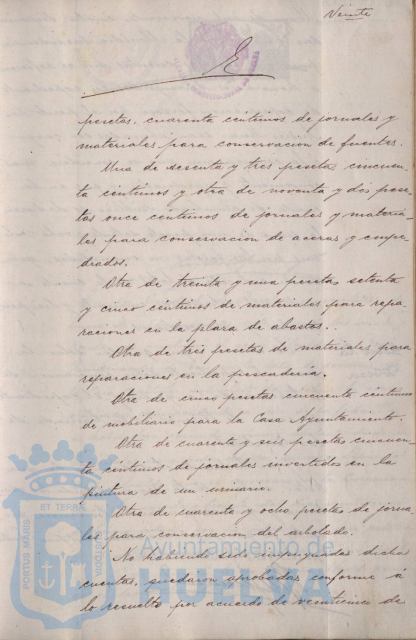 Veinte
pesetas, cuarenta céntimos de jornales y
materiales para conservacion de fuentes.
Una de sesenta y tres pesetas cincuen-
ta céntimos y otra de noventa y dos pese-
tas once céntimos de jornales y materia-
les para conservacion de aceras y empe-
drados.
Otra de treinta y una pesetas setenta
y cinco céntimos de materiales para repa-
raciones en la plaza de abastos.
Otra de tres pesetas de materiales para
reparaciones en la pescadería.
Otra de cinco pesetas cincuenta céntimos
de mobiliario para la Casa Ayuntamiento.
Otra de cuarenta y seis pesetas cincuen-
ta céntimos de jornales invertidos en la
pintura de un urinario.
Otra de cuarenta y ocho pesetas de jorna-
les para conservacion del arbolado.
No habiendo sido impugnadas dichas
cuentas, quedaron aprobadas conforme á
lo resuelto por acuerdo de veinticinco de
PORTUS MARIS ET TERRÆ CUSTODIA
Ayuntamiento de
HUELVA